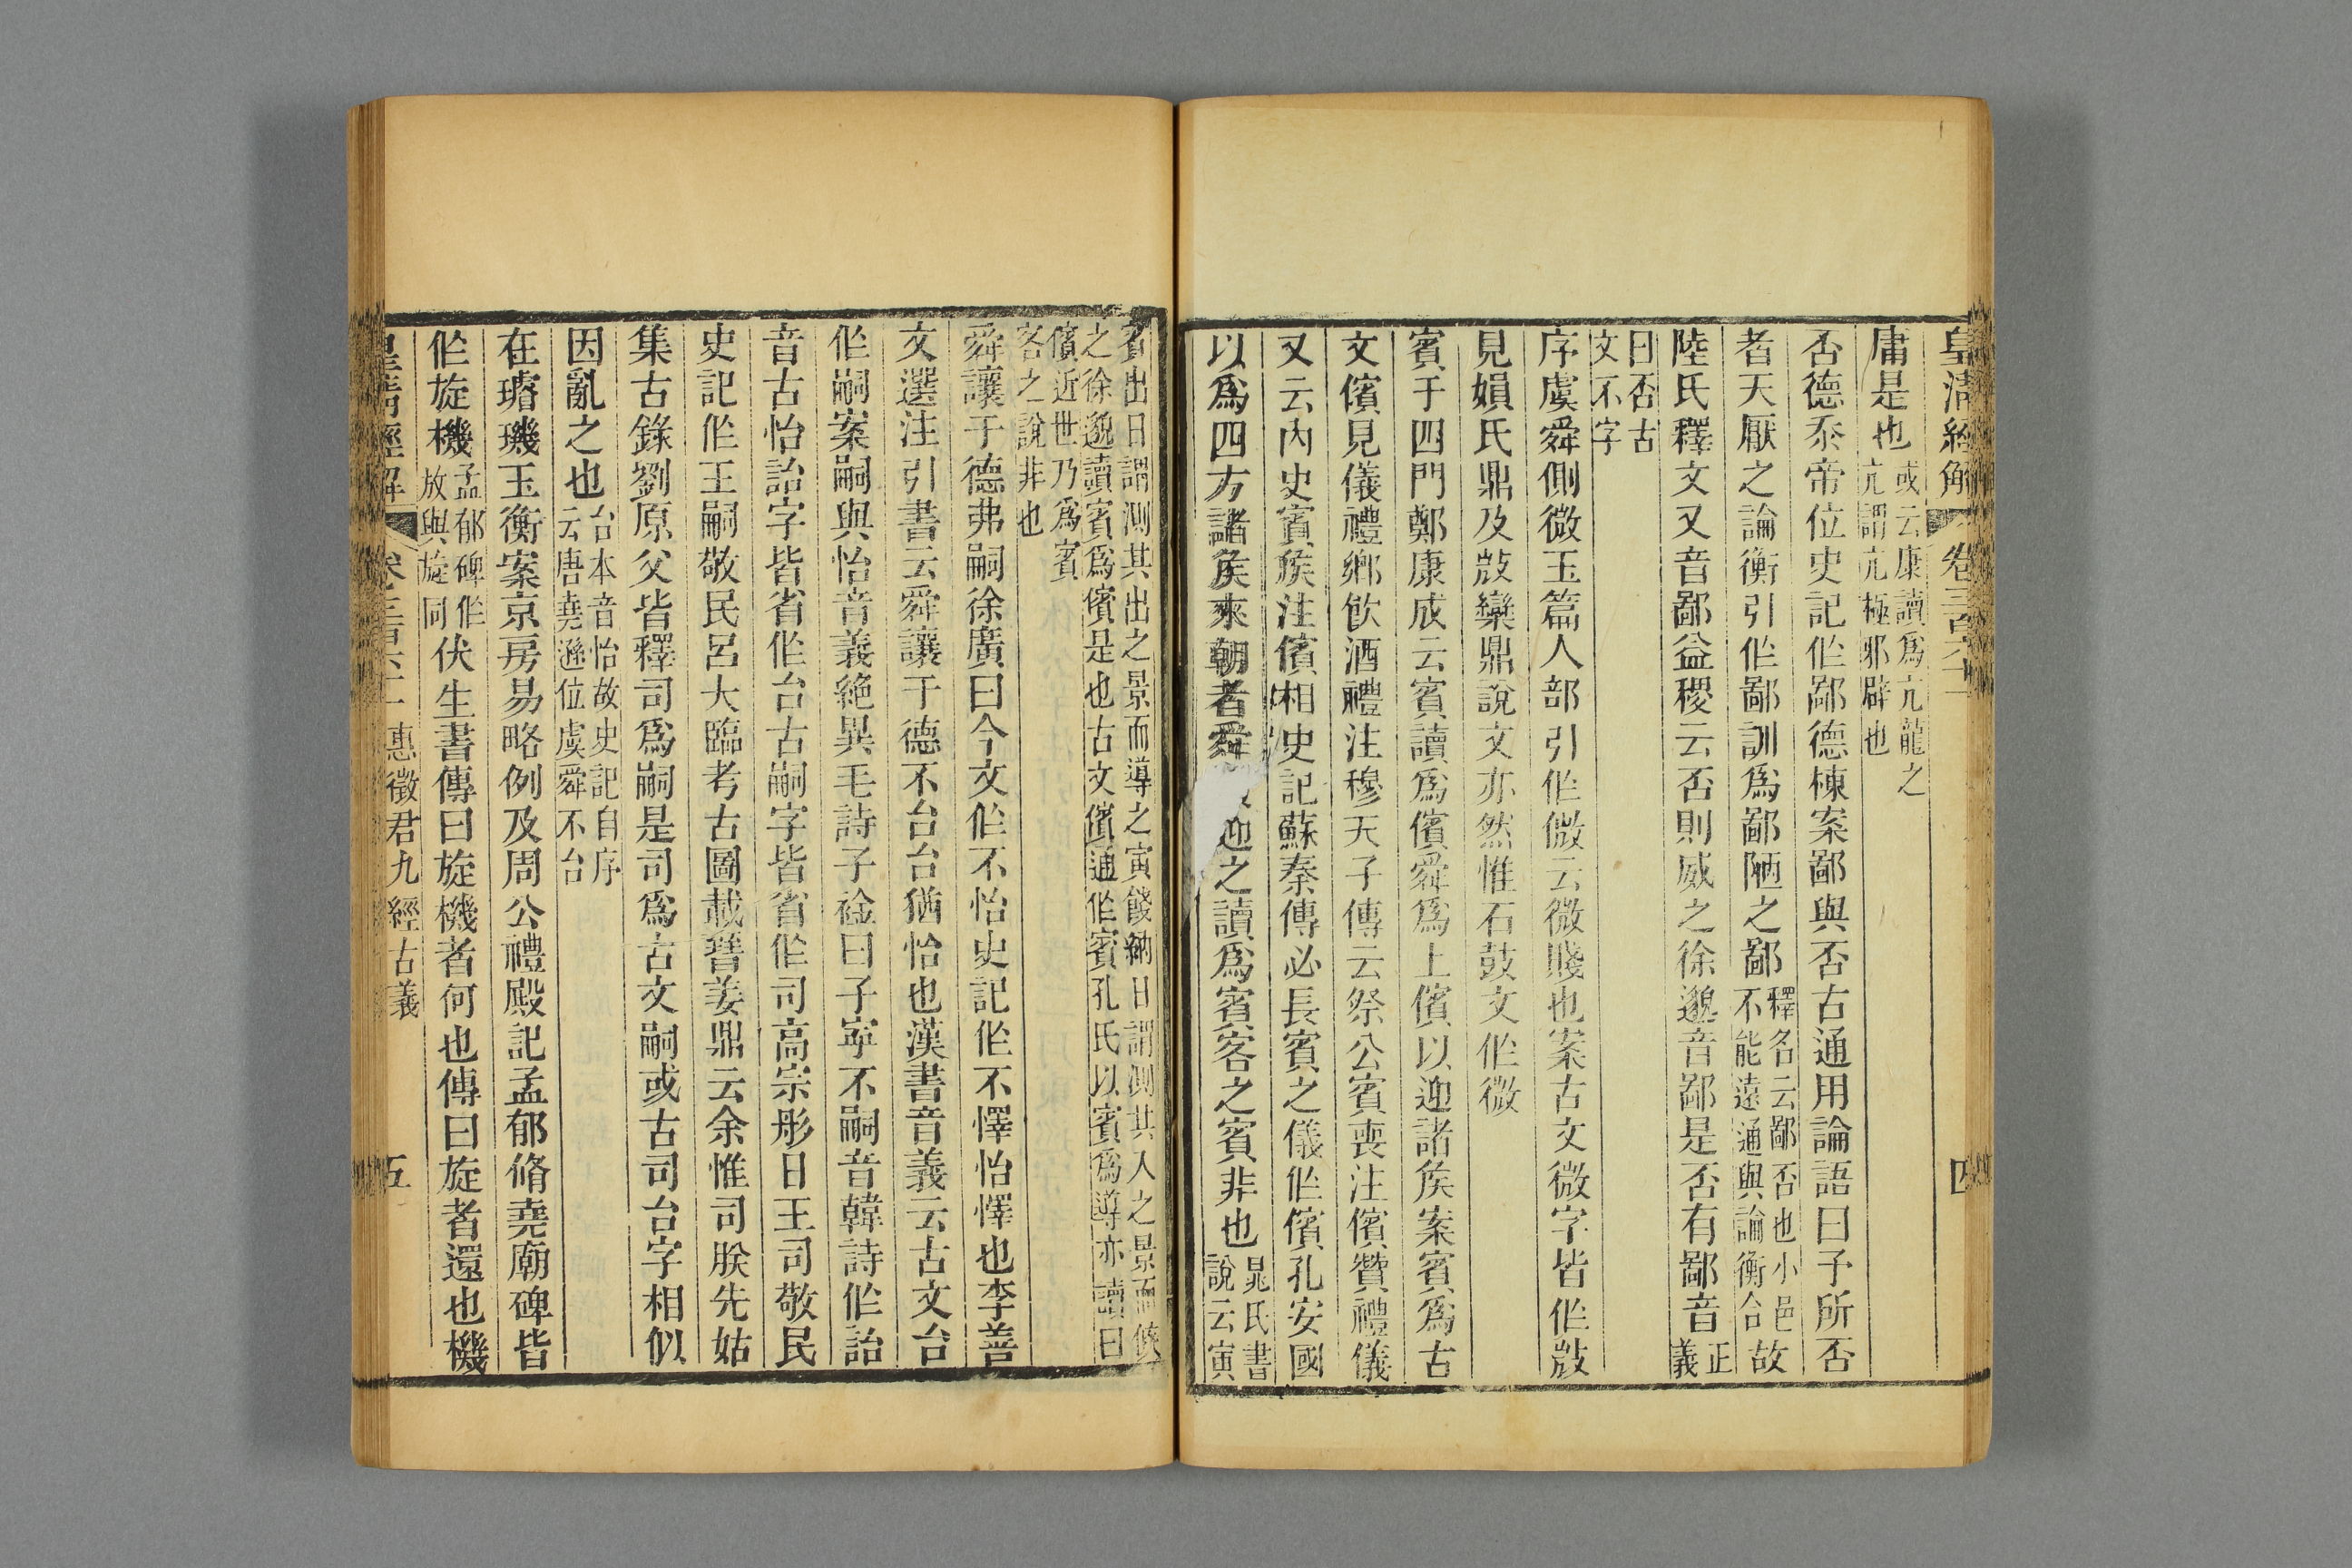 皇清經解 卷三百六十 四
庸是也或云康讀爲亢龍之亢謂亢極邪辟也
否德忝帝位史記作鄙德棟案鄙與否古通用論語曰予所否
者天厭之論衡引作鄙訓爲鄙陋之鄙釋名云鄙否也小邑不能遠通與論衡合故
陸氏釋文又音鄙益稷云否則威之徐邈音鄙是否有鄙音正義
曰否古文不字
序虞舜側微玉篇人部引作㣲云微賤也案古文微字皆作敳
見㛰氏鼎及敳欒鼎說文亦然惟石鼓文作微
賓于四門鄭康成云賓讀爲儐舜爲上儐以迎諸矦案賓爲古
文儐見儀禮鄉飲酒禮注穆天子傳云祭公賓喪注儐贊禮儀
又云內史賓矦注儐相史記蘇秦傳必長賓之儀作儐孔安國
以爲四方諸矦來朝者舜迎之讀爲賓客之賓非也晁氏書說云寅
賓出日謂測其出之景而導之寅餞納日謂測其入之景而餞之徐邈讀賓爲儐是也古文儐通作賓孔氏以賓爲導亦讀曰
儐近世乃爲賓客之說非也
舜讓于德弗嗣徐廣曰今文作不怡史記作不懌怡懌也李善
文選注引書云舜讓于德不台台猶怡也漢書音義云古文台
作嗣案嗣與怡音義絶異毛詩子衿曰子寧不嗣音韓詩作詒
音古怡詒字皆省作台古嗣字皆省作司高宗肜日王司敬民
史記作王嗣敬民呂大臨考古圖載晉姜鼎云余惟司朕先姑
集古錄劉原父皆釋司爲嗣是司爲古文嗣或古司台字相似
因亂之也台本音怡故史記自序云唐堯遜位虞舜不台
在璿璣玉衡案京房易略例及周公禮殿記孟郁脩堯廟碑皆
作旋機孟郁碑作放與旋同伏生書傳曰旋機者何也傳曰旋者還也機
皇清經解 卷三百六十 惠徵君九經古義 五